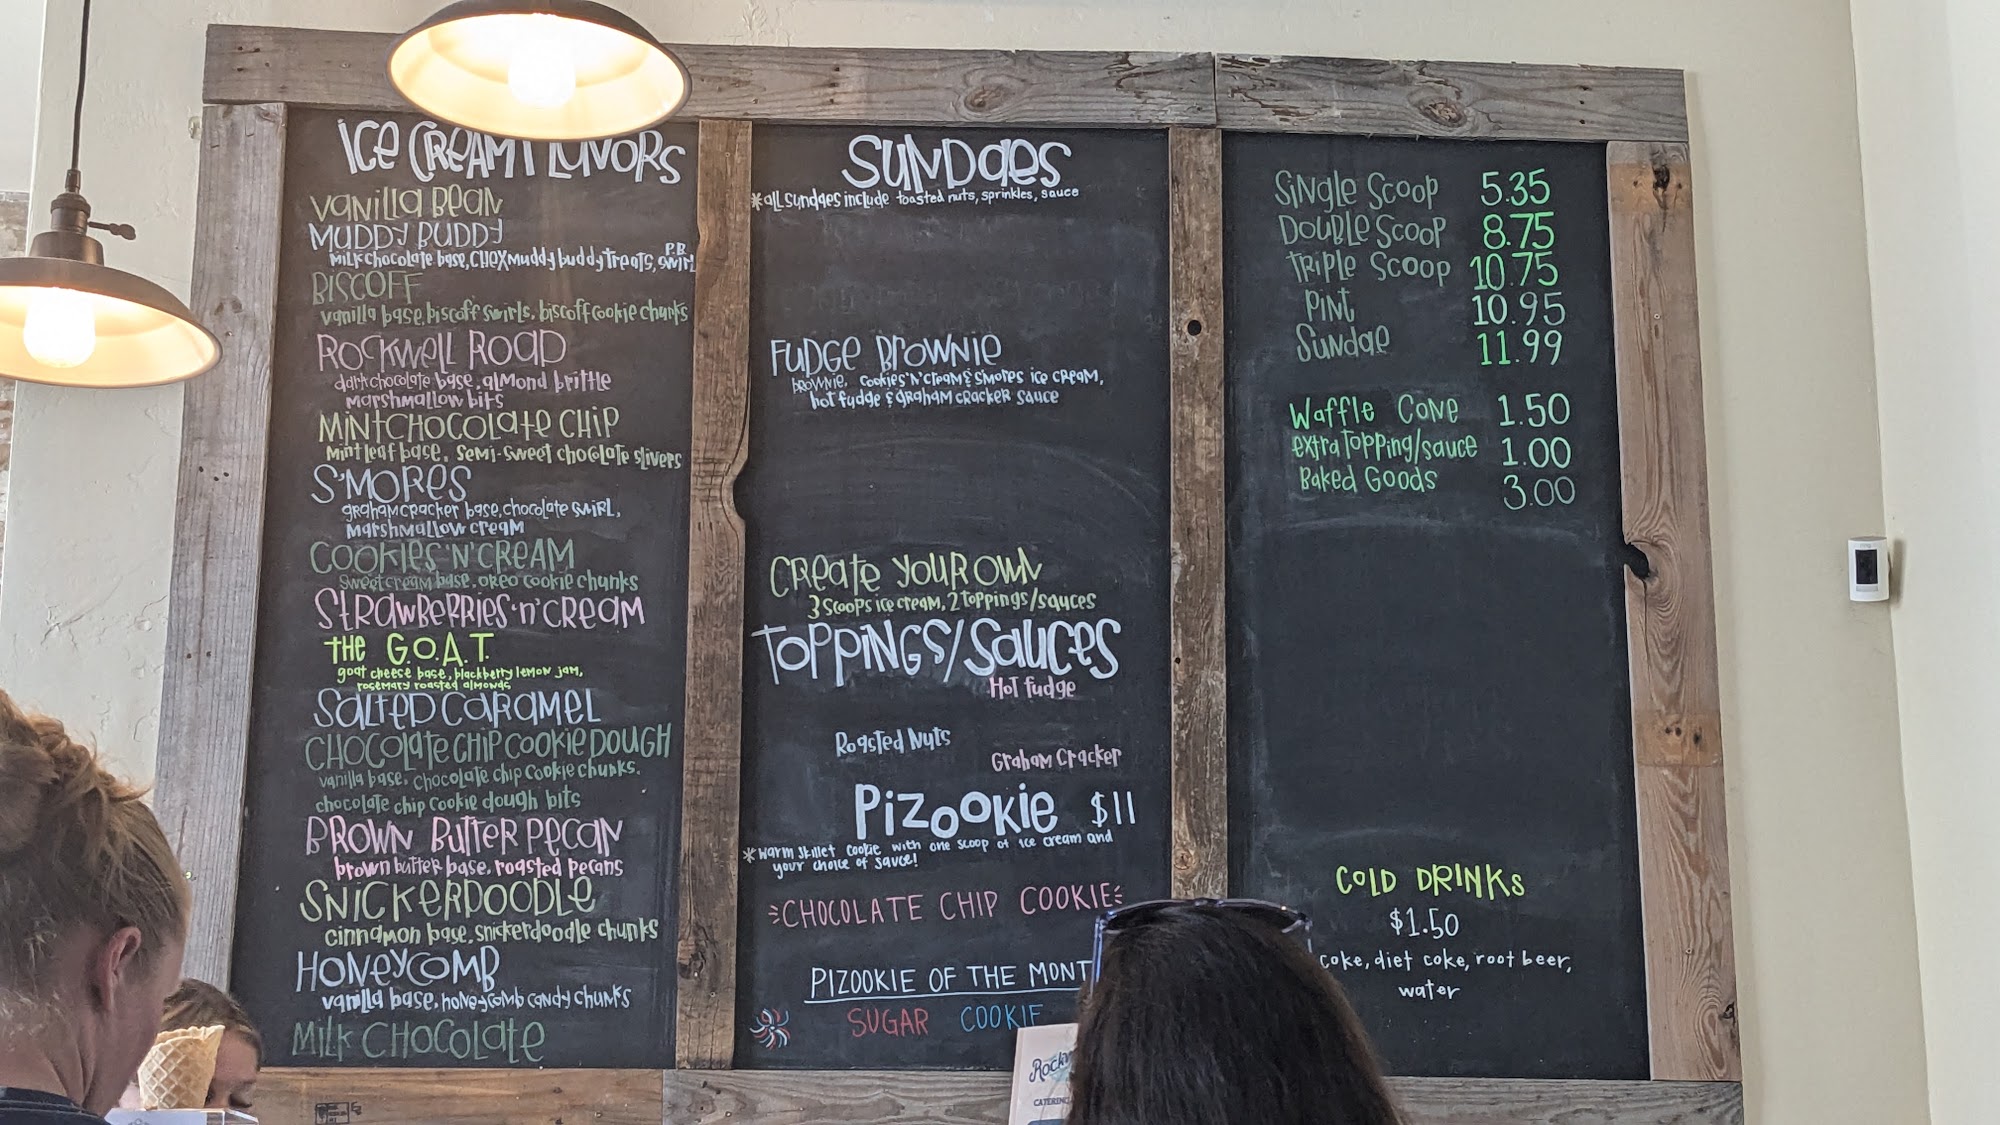 ICE CREAM FLAVORS
VANILLA BEAN
MUDDY BUDDY
milk chocolate base, CHEX muddy buddy treats, P.B. SWIRL
BISCOFF
vanilla base, biscoff swirls, biscoff cookie chunks
ROCKWELL ROAD
dark chocolate base, almond brittle
marshmallow bits
MINT CHOCOLATE CHIP
mint leaf base, semi-sweet chocolate slivers
S'MORES
graham cracker base, chocolate swirl,
marshmallow cream
COOKIES 'N' CREAM
sweet cream base, oreo cookie chunks
STRAWBERRIES 'N' CREAM
THE G.O.A.T.
goat cheese base, blackberry lemon jam,
rosemary roasted almonds
SALTED CARAMEL
CHOCOLATE CHIP COOKIE DOUGH
vanilla base, chocolate chip cookie chunks,
chocolate chip cookie dough bits
BROWN BUTTER PECAN
brown butter base, roasted pecans
SNICKERDOODLE
cinnamon base, snickerdoodle chunks
HONEYCOMB
vanilla base, honeycomb candy chunks
MILK CHOCOLATE
SUNDAES
*all sundaes include toasted nuts, sprinkles, sauce
FUDGE BROWNIE
brownie, cookies 'n' cream & s'mores ice cream,
hot fudge & graham cracker sauce
CREATE YOUR OWN
3 scoops ice cream, 2 toppings/sauces
TOPPINGS/SAUCES
Hot fudge
Roasted Nuts
Graham Cracker
PIZOOKIE $11
*warm skillet cookie with one scoop of ice cream and
your choice of sauce!
CHOCOLATE CHIP COOKIE
PIZOOKIE OF THE MONT
SUGAR COOKIE
Single Scoop 5.35
Double Scoop 8.75
Triple Scoop 10.75
Pint 10.95
Sundae 11.99
Waffle Cone 1.50
extra topping/sauce 1.00
Baked Goods 3.00
COLD DRINKS
$1.50
coke, diet coke, root beer,
water
CATERING